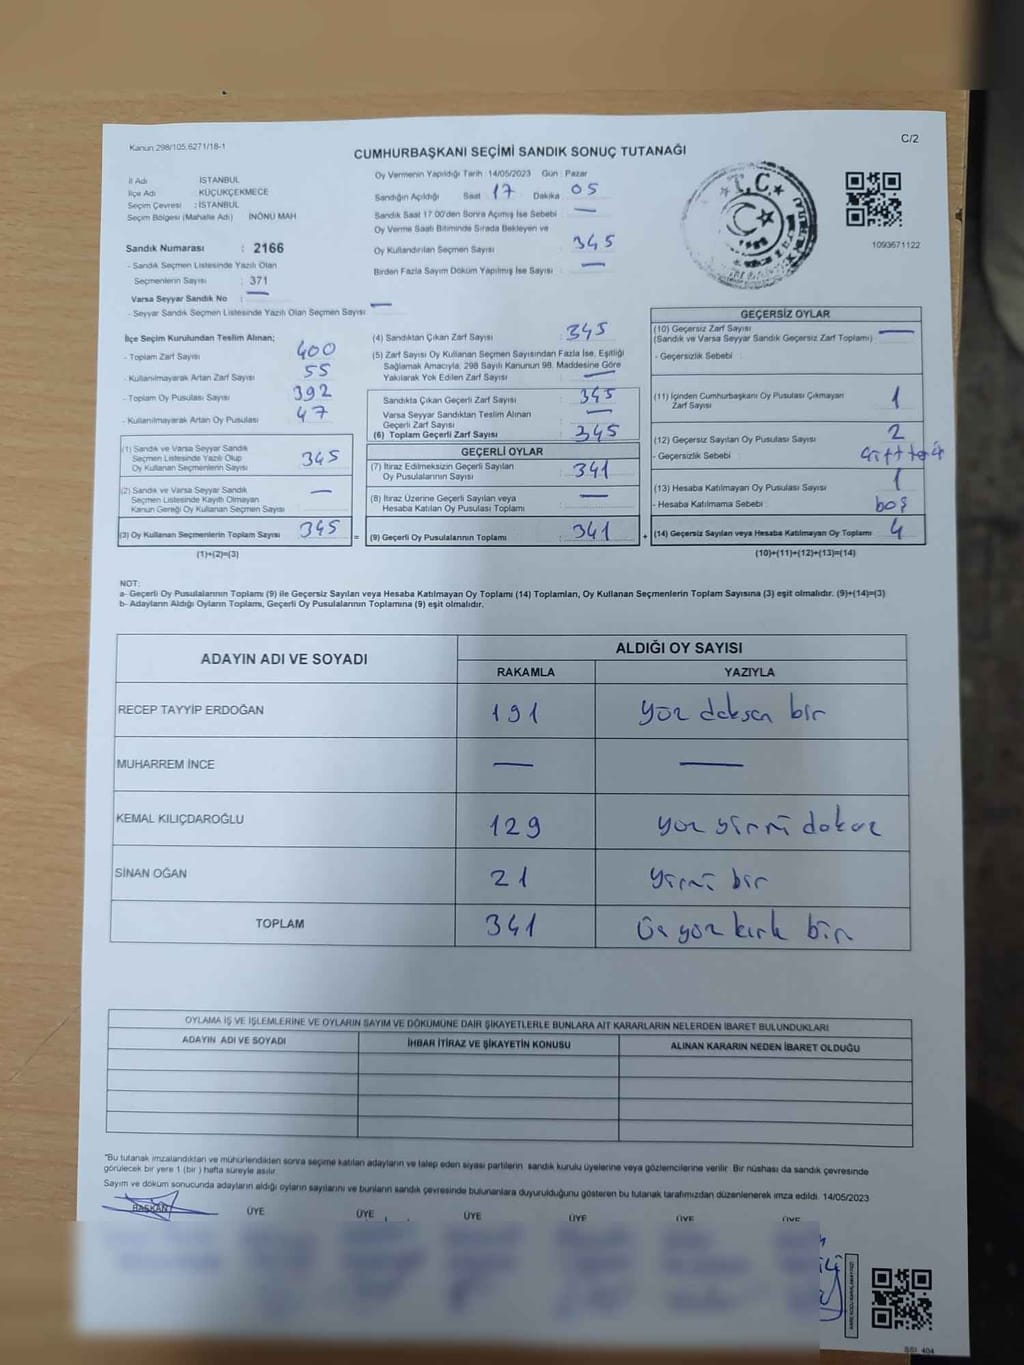 Kanun 298/105,6271/18-1
C/2
CUMHURBAŞKANI SEÇİMİ SANDIK SONUÇ TUTANAĞI
İl Adı İSTANBUL
İlçe Adı : KÜÇÜKÇEKMECE
Seçim Çevresi : İSTANBUL
Seçim Bölgesi (Mahalle Adı) İNÖNÜ MAH
Sandık Numarası : 2166
- Sandık Seçmen Listesinde Yazılı Olan
Seçmenlerin Sayısı : 371
Varsa Seyyar Sandık No : —
- Seyyar Sandık Seçmen Listesinde Yazılı Olan Seçmen Sayısı : —
Oy Vermenin Yapıldığı Tarih : 14/05/2023 Gün : Pazar
Sandığın Açıldığı Saat 17 Dakika 05
Sandık Saat 17.00'den Sonra Açılmış İse Sebebi : —
Oy Verme Saati Bitiminde Sırada Bekleyen ve
Oy Kullandırılan Seçmen Sayısı : 345
Birden Fazla Sayım Döküm Yapılmış İse Sayısı : —
T.C.
1093671122
İlçe Seçim Kurulundan Teslim Alınan;
- Toplam Zarf Sayısı : 400
- Kullanılmayarak Artan Zarf Sayısı : 55
- Toplam Oy Pusulası Sayısı : 392
- Kullanılmayarak Artan Oy Pusulası : 47
(1) Sandık ve Varsa Seyyar Sandık
Seçmen Listesinde Yazılı Olup
Oy Kullanan Seçmenlerin Sayısı : 345
(2) Sandık ve Varsa Seyyar Sandık
Seçmen Listesinde Kayıtlı Olmayan
Kanun Gereği Oy Kullanan Seçmen Sayısı : —
(3) Oy Kullanan Seçmenlerin Toplam Sayısı : 345
(1)+(2)=(3)
(4) Sandıktan Çıkan Zarf Sayısı : 345
(5) Zarf Sayısı Oy Kullanan Seçmen Sayısından Fazla İse, Eşitliği
Sağlamak Amacıyla, 298 Sayılı Kanunun 98. Maddesine Göre
Yakılarak Yok Edilen Zarf Sayısı : —
Sandıkta Çıkan Geçerli Zarf Sayısı : 345
Varsa Seyyar Sandıktan Teslim Alınan
Geçerli Zarf Sayısı : —
(6) Toplam Geçerli Zarf Sayısı : 345
GEÇERLİ OYLAR
(7) İtiraz Edilmeksizin Geçerli Sayılan
Oy Pusulalarının Sayısı : 341
(8) İtiraz Üzerine Geçerli Sayılan veya
Hesaba Katılan Oy Pusulası Toplamı : —
= (9) Geçerli Oy Pusulalarının Toplamı : 341
GEÇERSİZ OYLAR
(10) Geçersiz Zarf Sayısı : —
(Sandık ve Varsa Seyyar Sandık Geçersiz Zarf Toplamı)
- Geçersizlik Sebebi :
(11) İçinden Cumhurbaşkanı Oy Pusulası Çıkmayan
Zarf Sayısı : 1
(12) Geçersiz Sayılan Oy Pusulası Sayısı : 2
- Geçersizlik Sebebi :
(13) Hesaba Katılmayan Oy Pusulası Sayısı : 1
- Hesaba Katılmama Sebebi : boş
+ (14) Geçersiz Sayılan veya Hesaba Katılmayan Oy Toplamı : 4
(10)+(11)+(12)+(13)=(14)
NOT:
a- Geçerli Oy Pusulalarının Toplamı (9) ile Geçersiz Sayılan veya Hesaba Katılmayan Oy Toplamı (14) Toplamları, Oy Kullanan Seçmenlerin Toplam Sayısına (3) eşit olmalıdır. (9)+(14)=(3)
b- Adayların Aldığı Oyların Toplamı, Geçerli Oy Pusulalarının Toplamına (9) eşit olmalıdır.
ADAYIN ADI VE SOYADI ALDIĞI OY SAYISI
RAKAMLA YAZIYLA
RECEP TAYYİP ERDOĞAN 191 yüz doksan bir
MUHARREM İNCE — —
KEMAL KILIÇDAROĞLU 129 yüz yirmi dokuz
SİNAN OĞAN 21 yirmi bir
TOPLAM 341 Üç yüz kırk bir
OYLAMA İŞ VE İŞLEMLERİNE VE OYLARIN SAYIM VE DÖKÜMÜNE DAİR ŞİKAYETLERLE BUNLARA AİT KARARLARIN NELERDEN İBARET BULUNDUKLARI
ADAYIN ADI VE SOYADI İHBAR İTİRAZ VE ŞİKAYETİN KONUSU ALINAN KARARIN NEDEN İBARET OLDUĞU
*Bu tutanak imzalandıktan ve mühürlendikten sonra seçime katılan adayların ve talep eden siyasi partilerin sandık kurulu üyelerine veya gözlemcilerine verilir. Bir nüshası da sandık çevresinde
görülecek bir yere 1 (bir) hafta süreyle asılır.
Sayım ve döküm sonucunda adayların aldığı oyların sayılarını ve bunların sandık çevresinde bulunanlara duyurulduğunu gösteren bu tutanak tarafımızdan düzenlenerek imza edildi. 14/05/2023
BAŞKAN ÜYE ÜYE ÜYE ÜYE ÜYE ÜYE